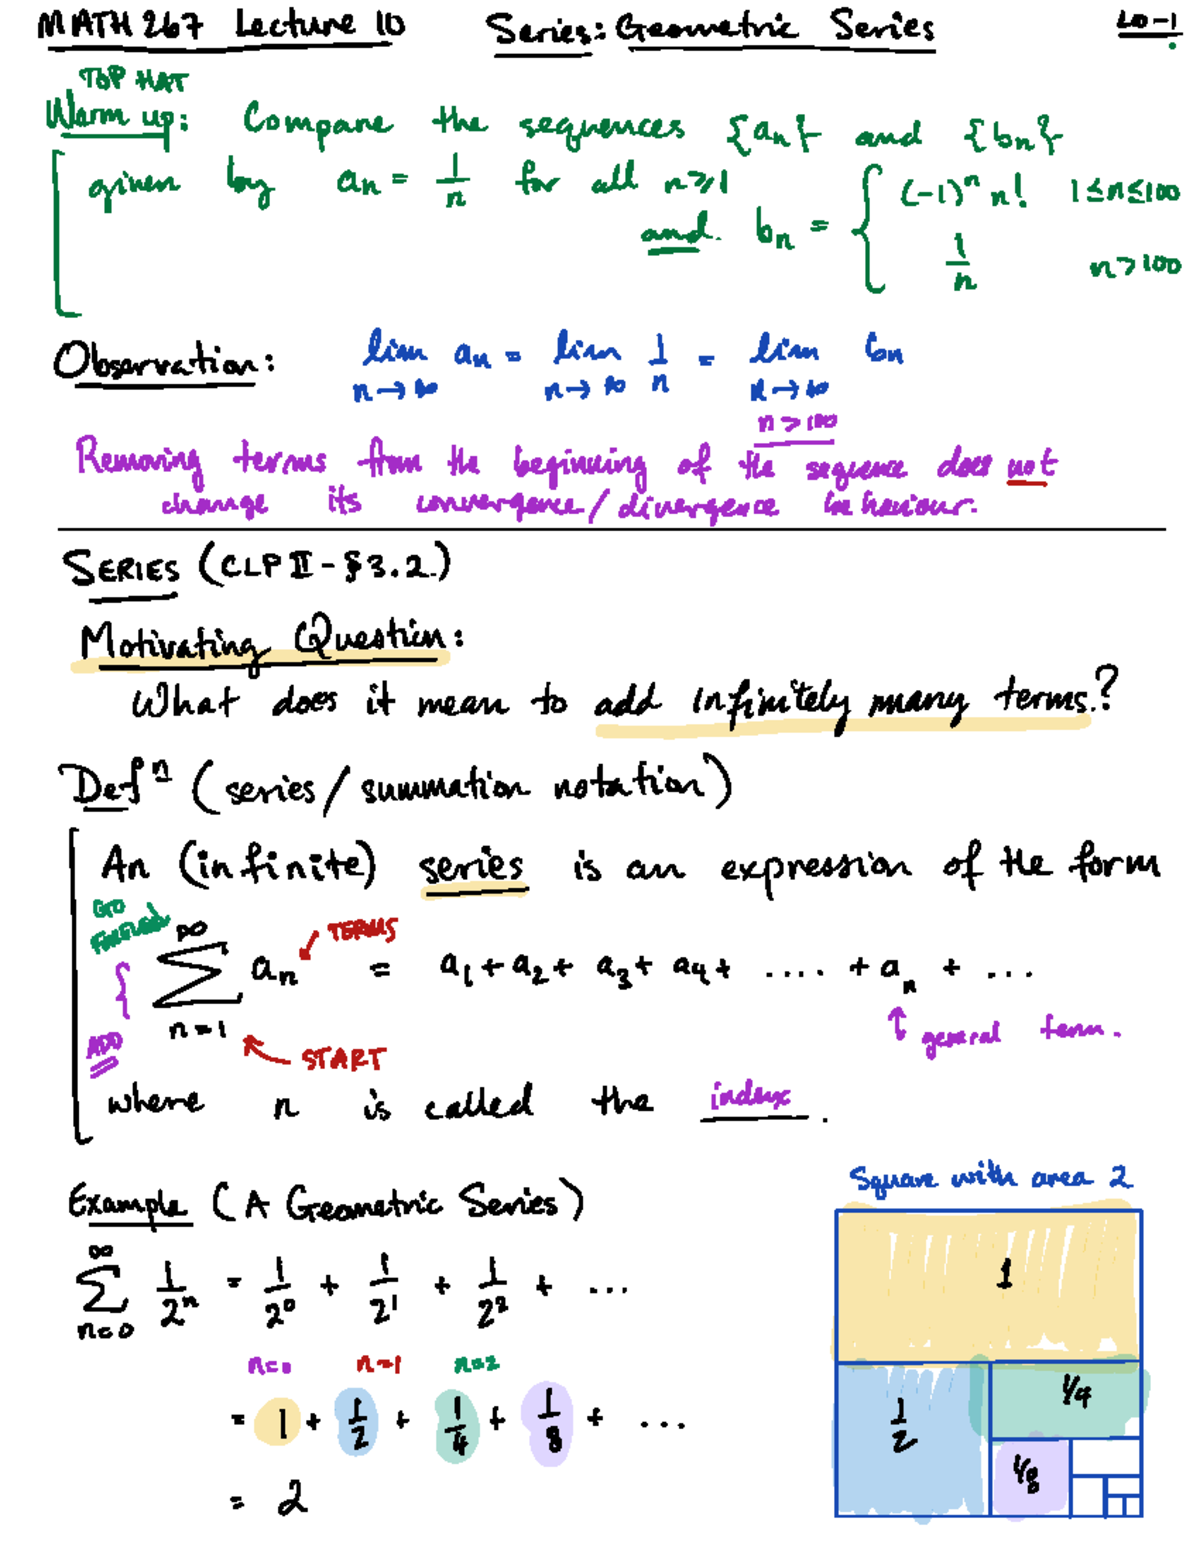 MATH 267 Lecture 10 Series: Geometric Series L0-1
TOP HAT
Warm up: Compare the sequences {an} and {bn}
given by an = 1/n for all n≥1
and bn = { (-1)^n n! 1≤n≤100
1/n n>100
Observation: lim n→∞ an = lim n→∞ 1/n = lim n→∞ bn
n>100
Removing terms from the beginning of the sequence does not
change its convergence/divergence behaviour.
SERIES (CLP II - §3.2)
Motivating Question:
What does it mean to add infinitely many terms?
Defn (series/summation notation)
An (infinite) series is an expression of the form
GO
FOREVER
TERMS
∑ n=1 ∞ an = a1 + a2 + a3 + a4 + .... + an + ...
ADD
START
general term.
where n is called the index.
Example (A Geometric Series)
∑ n=0 ∞ 1/2^n = 1/2^0 + 1/2^1 + 1/2^2 + ...
n=0 n=1 n=2
= 1 + 1/2 + 1/4 + 1/8 + ...
= 2
Square with area 2
1
1/2
1/4
1/8